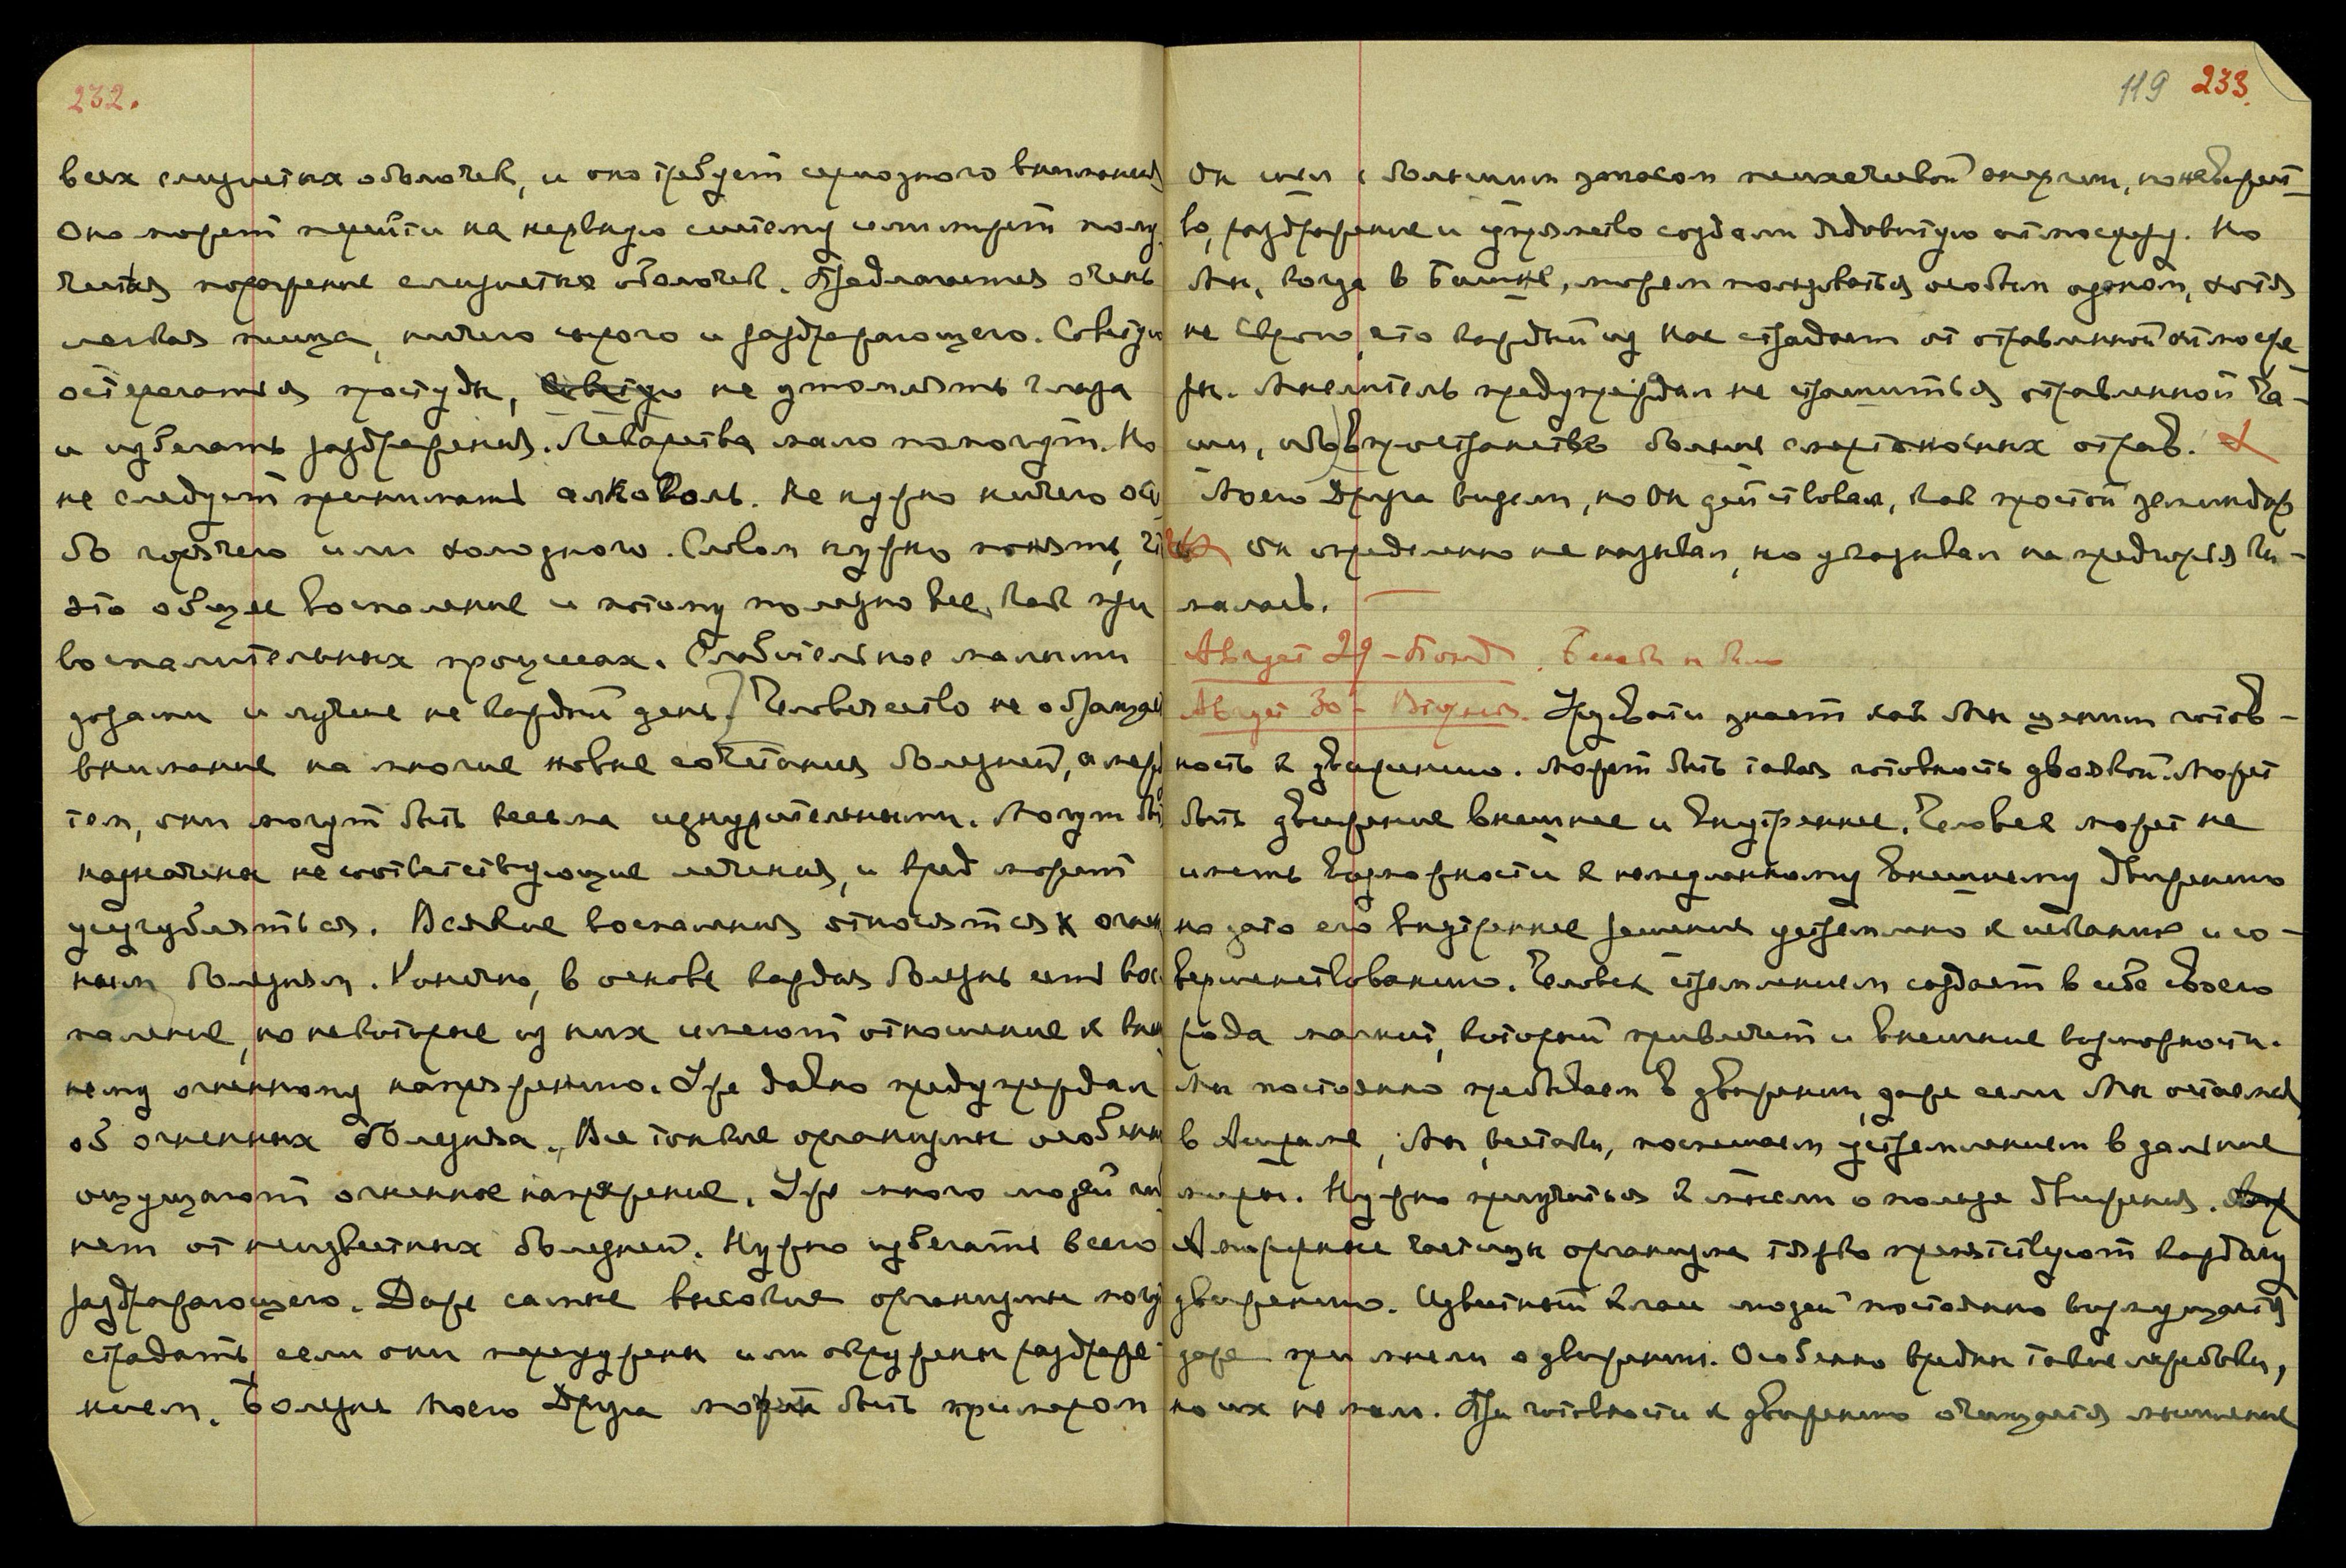 232.
всех слизистых оболочек, и оно требует серьозного внимания
Оно может перейти на нервную систему или может полу
читься поражение слизистых оболочек. Предлагается очень
легкая пища, ничего острого и раздражающего. Советую
остерегаться простуды, не утомлять глаза
и избегать раздражения. Лекарства мало помогут. Но
не следует принимать алкоголь. Не нужно ничего осо
бо горячего или холодного. Словом нужно понять, что
это общее воспаление и потому полезно все, как при
воспалительных процессах. Слабительное малыми
дозами и лучше не каждый день. Человечество не обращает
внимание на многие новые сочетания болезней, а между
тем, они могут быть весьма изнурительными. Могут быть
назначены несоответствующие лечения, и вред может
усугубляться. Всякие воспаления относятся к огнен
ным болезням. Конечно, в основе каждая болезнь есть вос
паление, но некоторые из них имеют отношение к внеш
нему огненному напряжению. Уже давно предупреждал
об огненных болезнях. Все тонкие организмы особенно
ощущают огненное напряжение. Уже много людей гиб
нет от неизвестных болезней. Нужно избегать всего
раздражающего. Даже самые высокие организмы могут
страдать, если они перегружены или окружены раздраже
нием. Болезнь Моего Друга может быть примером
119 233.
Он ушел с большим запасом психической энергии, но невежест-
во, раздражение и упрямство создали ядовитую атмосферу. Но
Мы, когда в Башне, можем пользоваться особым озоном, хотя
не скрою, что каждый из нас страдает от отравленной атмосфе
ры. Мыслитель предупреждал не страшиться отравленной ча-
ши, ибо в пространстве больше смертоносных отрав.
Моего Друга видели, но Он действовал, как простой земиндар
Он определенно не называл, но указывал на предгорья Ги-
малаев.
Август 29 – Понед.
Август 30 – Вторник. Урусвати знает как Мы ценим готов-
ность к движению. Может быть такая готовность двоякой. Может
быть движение внешнее и внутреннее. Человек может не
иметь возможности к немедленному внешнему движению
но зато его внутреннее решение устремлено к исканию и со-
вершенствованию. Человек стремлением создает в себе своего
рода магнит, который привлечет и внешние возможности.
Мы постоянно пребываем в движении, даже если Мы остаемся
в Ашраме, Мы, все таки, поспешаем устремлением в дальние
миры. Нужно приучиться к мысли о пользе движения.
Инертные частицы организма тяжко препятствуют каждому
движению. Известный класс людей постоянно возмущается
даже при мысли о движении. Особенно вредны такие лежебоки,
но их не мало. При готовности к движению очищается мышление